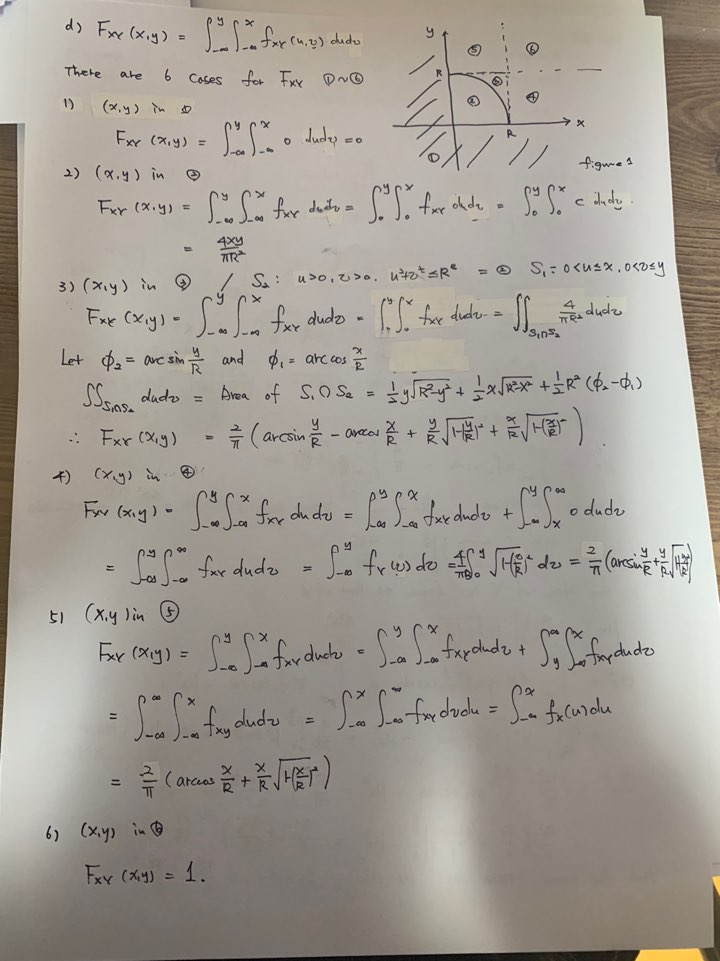 d) F_XY (x,y) = ∫_{-∞}^{y} ∫_{-∞}^{x} f_XY (u,v) dudv
There are 6 cases for F_XY ①~⑥
y
⑤
⑥
R
③
②
④
①
R
x
figure 1
1) (x,y) in ①
F_XY (x,y) = ∫_{-∞}^{y} ∫_{-∞}^{x} 0 dudv = 0
2) (x,y) in ②
F_XY (x,y) = ∫_{-∞}^{y} ∫_{-∞}^{x} f_XY dudv = ∫_0^y ∫_0^x f_XY dudv = ∫_0^y ∫_0^x c dudv.
= 4xy/πR²
3) (x,y) in ③ / S₂ : u>0, v>0. u²+v² ≤ R² = ② S₁ = 0<u≤x, 0<v≤y
F_XY (x,y) = ∫_{-∞}^{y} ∫_{-∞}^{x} f_XY dudv = ∫_0^y ∫_0^x f_XY dudv = ∬_{S₁∩S₂} 4/πR² dudv
Let φ₂ = arcsin y/R and φ₁ = arccos x/R
∬_{S₁∩S₂} dudv = Area of S₁∩S₂ = ½y√(R²-y²) + ½x√(R²-x²) + ½R² (φ₂-φ₁)
∴ F_XY (x,y) = 2/π (arcsin y/R - arccos x/R + y/R √(1-(y/R)²) + x/R √(1-(x/R)²))
4) (x,y) in ④
F_XY (x,y) = ∫_{-∞}^{y} ∫_{-∞}^{x} f_XY dudv = ∫_{-∞}^{y} ∫_{-∞}^{x} f_XY dudv + ∫_{-∞}^{y} ∫_x^{∞} 0 dudv
= ∫_{-∞}^{y} ∫_{-∞}^{∞} f_XY dudv = ∫_{-∞}^{y} f_Y (v) dv = 4/πR ∫_0^y √(1-(v/R)²) dv = 2/π (arcsin y/R + y/R √(1-(y/R)²))
5) (x,y) in ⑤
F_XY (x,y) = ∫_{-∞}^{y} ∫_{-∞}^{x} f_XY dudv = ∫_{-∞}^{y} ∫_{-∞}^{x} f_XY dudv + ∫_y^{∞} ∫_{-∞}^{x} f_XY dudv
= ∫_{-∞}^{∞} ∫_{-∞}^{x} f_xy dudv = ∫_{-∞}^{x} ∫_{-∞}^{∞} f_XY dvdu = ∫_{-∞}^{x} f_X (u) du
= 2/π (arccos x/R + x/R √(1-(x/R)²))
6) (x,y) in ⑥
F_XY (x,y) = 1.